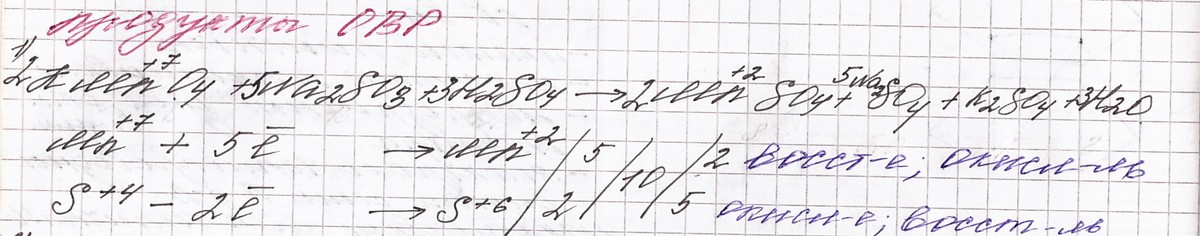 продукты ОВР
1) 2KMn⁺⁷O₄ + 5Na₂SO₃ + 3H₂SO₄ → 2Mn⁺²SO₄ + 5Na₂SO₄ + K₂SO₄ + 3H₂O
Mn⁺⁷ + 5ē → Mn⁺² / 5 / 10 / 2 восст-е; окисл-ль
S⁺⁴ - 2ē → S⁺⁶ / 2 / 5 окисл-е; восст-ль